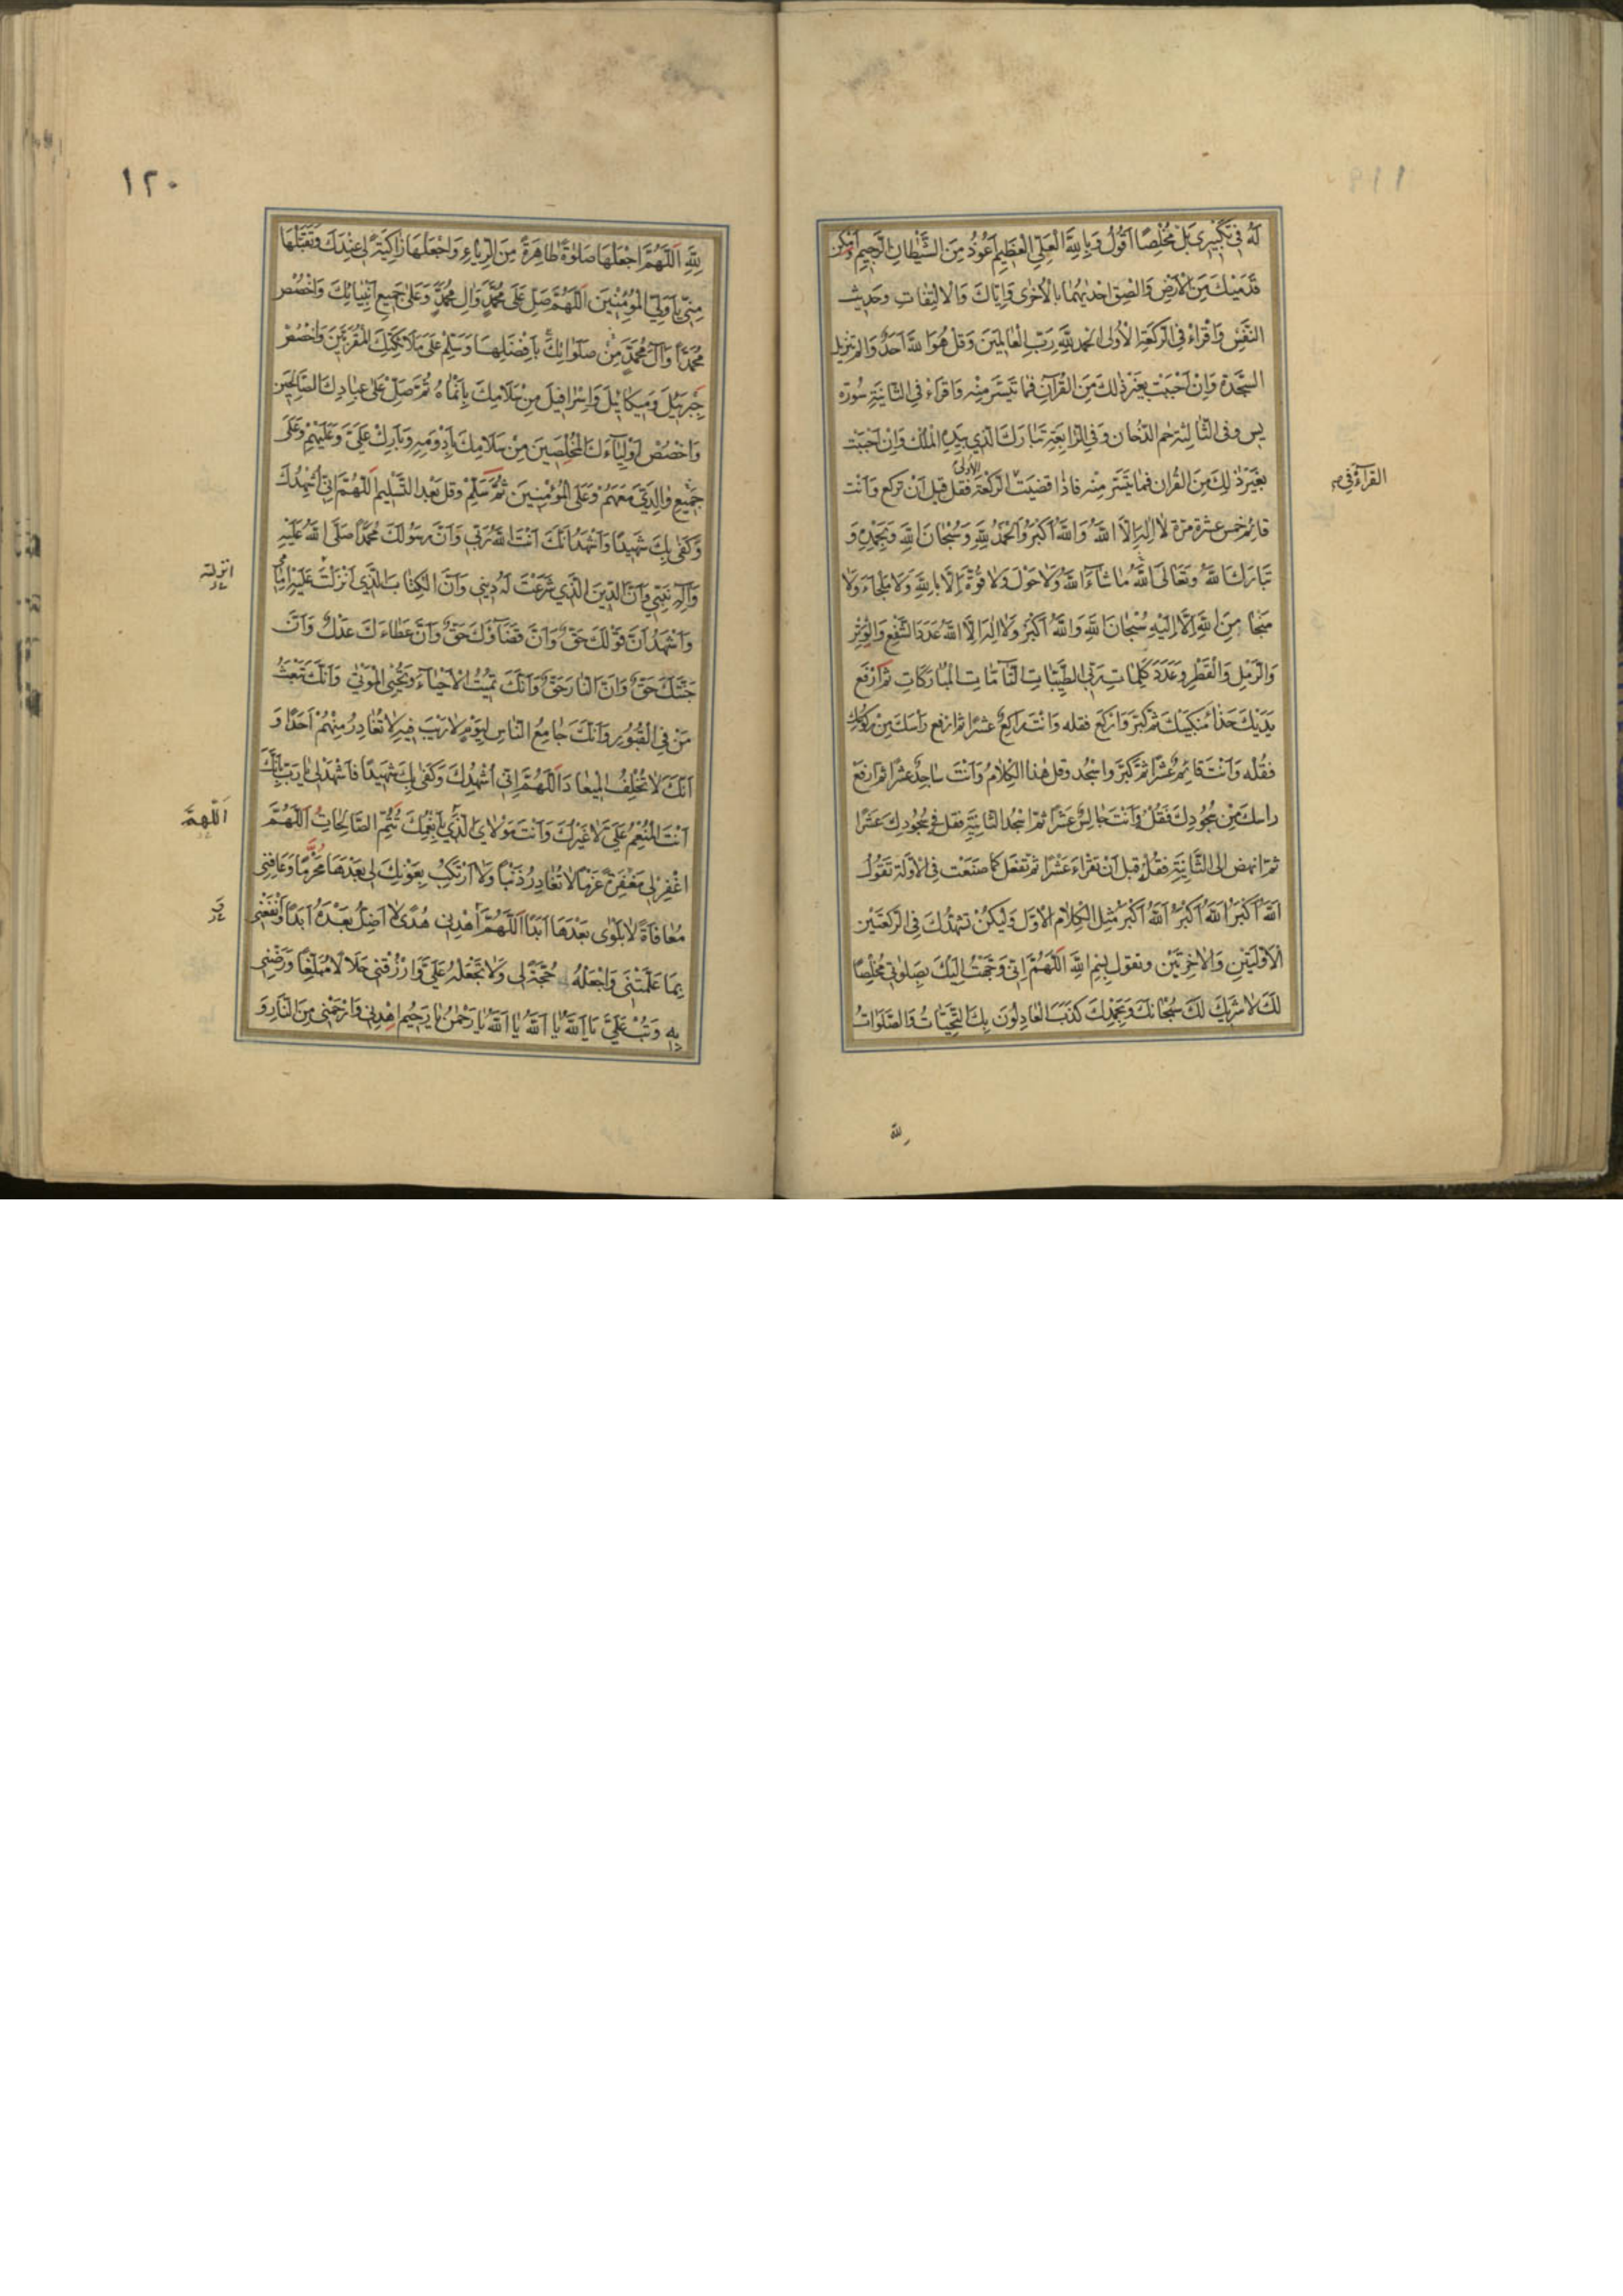 لَهُ فِي تَكْبِيرِي بَلْ مُخْلِصًا أَقُولُ وَبِاللهِ الْعَلِيِّ الْعَظِيمِ أَعُوذُ مِنَ الشَّيْطَانِ الرَّجِيمِ أَمْكِنْ
قَدَمَيْكَ مِنَ الْأَرْضِ وَالْصِقْ إِحْدَيهُمَا بِالْأُخْرَى وَإِيَّاكَ وَالِالْتِفَاتِ وَحَدِيثَ
النَّفْسِ وَاقْرَأْ فِي الرَّكْعَةِ الْأُولَى الْحَمْدُ لِلَّهِ رَبِّ الْعَالَمِينَ وَقُلْ هُوَ اللهُ أَحَدٌ وَالم تَنْزِيلُ
السَّجْدَةِ وَإِنْ أَحْبَبْتَ بِغَيْرِ ذَلِكَ مِنَ الْقُرْآنِ فَمَا تَيَسَّرَ مِنْهُ وَاقْرَأْ فِي الثَّانِيَةِ سُورَةَ
يس وَفِي الثَّالِثَةِ حم الدُّخَانَ وَفِي الرَّابِعَةِ تَبَارَكَ الَّذِي بِيَدِهِ الْمُلْكُ وَإِنْ أَحْبَبْتَ
بِغَيْرِ ذَلِكَ مِنَ الْقُرْآنِ فَمَا تَيَسَّرَ مِنْهُ فَإِذَا قَضَيْتَ الرَّكْعَةَ الأولى فَقُلْ قَبْلَ أَنْ تَرْكَعَ وَأَنْتَ
القراءة في
قَائِمٌ خَمْسَ عَشْرَةَ مَرَّةً لَا إِلَهَ إِلَّا اللهُ وَاللهُ أَكْبَرُ وَالْحَمْدُ لِلَّهِ وَسُبْحَانَ اللهِ وَبِحَمْدِهِ وَ
تَبَارَكَ اللهُ وَتَعَالَى اللهُ مَا شَاءَ اللهُ وَلَا حَوْلَ وَلَا قُوَّةَ إِلَّا بِاللهِ وَلَا مَلْجَاءَ وَلَا
مَنْجَا مِنَ اللهِ إِلَّا إِلَيْهِ سُبْحَانَ اللهِ وَاللهُ أَكْبَرُ وَلَا إِلَهَ إِلَّا اللهُ عَدَدَ الشَّفْعِ وَالْوَتْرِ
وَالرَّمْلِ وَالْقَطْرِ وَعَدَدَ كَلِمَاتِ رَبِّي الطَّيِّبَاتِ التَّامَّاتِ الْمُبَارَكَاتِ ثُمَّ ارْفَعْ
يَدَيْكَ حِذَاءَ مَنْكِبَيْكَ ثُمَّ كَبِّرْ وَارْكَعْ فَقُلْهُ وَأَنْتَ رَاكِعٌ عَشْرًا ثُمَّ ارْفَعْ رَأْسَكَ مِنْ رُكُوعِكَ
فَقُلْهُ وَأَنْتَ قَائِمٌ عَشْرًا ثُمَّ كَبِّرْ وَاسْجُدْ وَقُلْ هَذَا الْكَلَامَ وَأَنْتَ سَاجِدٌ عَشْرًا ثُمَّ ارْفَعْ
رَأْسَكَ مِنْ سُجُودِكَ فَقُلْ وَأَنْتَ جَالِسٌ عَشْرًا ثُمَّ اسْجُدِ الثَّانِيَةَ فَقُلْ فِي سُجُودِكَ عَشْرًا
ثُمَّ انْهَضْ إِلَى الثَّانِيَةِ فَقُلْهُ قَبْلَ أَنْ تَقْرَأَ عَشْرًا ثُمَّ تَفْعَلْ كَمَا صَنَعْتَ فِي الْأَوَّلَةِ تَقُولُ
اللهُ أَكْبَرُ اللهُ أَكْبَرُ اللهُ أَكْبَرُ مِثْلَ الْكَلَامِ الْأَوَّلِ وَلْيَكُنْ تَشَهُّدُكَ فِي الرَّكْعَتَيْنِ
الْأَوَّلَتَيْنِ وَالْآخِرَتَيْنِ وَتَقُولُ بِسْمِ اللهِ اللَّهُمَّ إِنِّي وَجَّهْتُ إِلَيْكَ بِصَلَوتِي مُخْلِصًا
لَكَ لَا شَرِيكَ لَكَ سُبْحَانَكَ وَبِحَمْدِكَ كَذَبَ الْعَادِلُونَ بِكَ التَّحِيَّاتُ وَالصَّلَوَاتُ
لله
١٢٠
لِلَّهِ اللَّهُمَّ اجْعَلْهَا صَلَوةً طَاهِرَةً مِنَ الرِّيَاءِ وَاجْعَلْهَا زَاكِيَةً لِي عِنْدَكَ وَتَقَبَّلْهَا
مِنِّي يَا وَلِيَّ الْمُؤْمِنِينَ اللَّهُمَّ صَلِّ عَلَى مُحَمَّدٍ وَآلِ مُحَمَّدٍ وَعَلَى جَمِيعِ أَنْبِيَائِكَ وَاخْصُصْ
مُحَمَّدًا وَآلَ مُحَمَّدٍ مِنْ صَلَوَاتِكَ بِأَفْضَلِهَا وَسَلِّمْ عَلَى مَلَائِكَتِكَ الْمُقَرَّبِينَ وَاخْصُصْ
جَبْرَئِيلَ وَمِيكَائِيلَ وَإِسْرَافِيلَ مِنْ سَلَامِكَ بِأَنْمَاهُ ثُمَّ صَلِّ عَلَى عِبَادِكَ الصَّالِحِينَ
وَاخْصُصْ أَوْلِيَاءَكَ الْمُخْلِصِينَ مِنْ سَلَامِكَ بِأَدْوَمِهِ وَبَارِكْ عَلَيَّ وَعَلَيْهِمْ وَعَلَى
جَمِيعِ وَالِدَيَّ مَعَهُمْ وَعَلَى الْمُؤْمِنِينَ ثُمَّ سَلِّمْ وَقُلْ بَعْدَ التَّسْلِيمِ اللَّهُمَّ إِنِّي أُشْهِدُكَ
وَكَفَى بِكَ شَهِيدًا وَأَشْهَدُ أَنَّكَ أَنْتَ اللهُ رَبِّي وَأَنَّ رَسُولَكَ مُحَمَّدًا صَلَّى اللهُ عَلَيْهِ
وَآلِهِ نَبِيِّي وَأَنَّ الدِّينَ الَّذِي شَرَعْتَ لَهُ دِينِي وَأَنَّ الْكِتَابَ الَّذِي أَنْزَلْتَ عَلَيْهِ إِمَامِي
انزلته
وَأَشْهَدُ أَنَّ قَوْلَكَ حَقٌّ وَأَنَّ قَضَاؤَكَ حَقٌّ وَأَنَّ عَطَاءَكَ عَدْلٌ وَأَنَّ
جَنَّتَكَ حَقٌّ وَأَنَّ النَّارَ حَقٌّ وَأَنَّكَ تُمِيتُ الْأَحْيَاءَ وَتُحْيِي الْمَوْتَى وَأَنَّكَ تَبْعَثُ
مَنْ فِي الْقُبُورِ وَأَنَّكَ جَامِعُ النَّاسِ لِيَوْمٍ لَا رَيْبَ فِيهِ لَا تُغَادِرُ مِنْهُمْ أَحَدًا وَ
أَنَّكَ لَا تُخْلِفُ الْمِيعَادَ اللَّهُمَّ إِنِّي أُشْهِدُكَ وَكَفَى بِكَ شَهِيدًا فَاشْهَدْ لِي يَا رَبِّ بِأَنَّكَ
أَنْتَ الْمُنْعِمُ عَلَيَّ لَا غَيْرُكَ وَأَنْتَ مَوْلَايَ الَّذِي بِأَنْعُمِكَ تَتِمُّ الصَّالِحَاتُ اللَّهُمَّ
اللَّهُمَّ
اغْفِرْ لِي مَغْفِرَةً عَزْمًا لَا تُغَادِرُ ذَنْبًا وَلَا أَرْتَكِبُ بِعَوْنِكَ لِي بَعْدَهَا مُحَرَّمًا وَعَافِنِي
مُعَافَاةً لَا بَلْوَى بَعْدَهَا أَبَدًا اللَّهُمَّ اهْدِنِي هُدًى لَا أَضِلُّ بَعْدَهُ أَبَدًا وَانْفَعْنِي
بِمَا عَلَّمْتَنِي وَاجْعَلْهُ حُجَّةً لِي وَلَا تَجْعَلْهُ عَلَيَّ وَارْزُقْنِي حَلَالًا مُبَلِّغًا وَرَضِّنِي
بِهِ وَتُبْ عَلَيَّ يَا اَللهُ يَا اَللهُ يَا اَللهُ يَا رَحْمَنُ يَا رَحِيمُ اهْدِنِي وَارْحَمْنِي مِنَ النَّارِ وَ